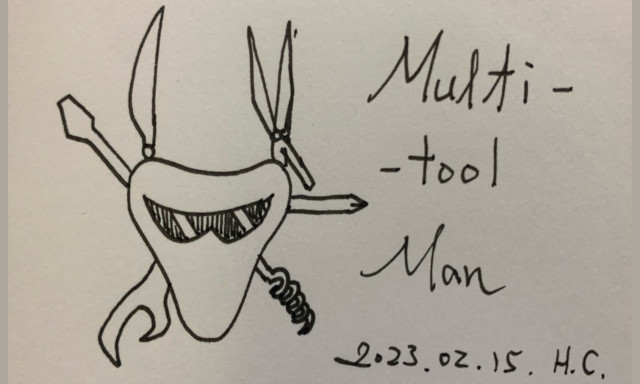 Multi-
-tool
Man
2023.02.15. H.C.